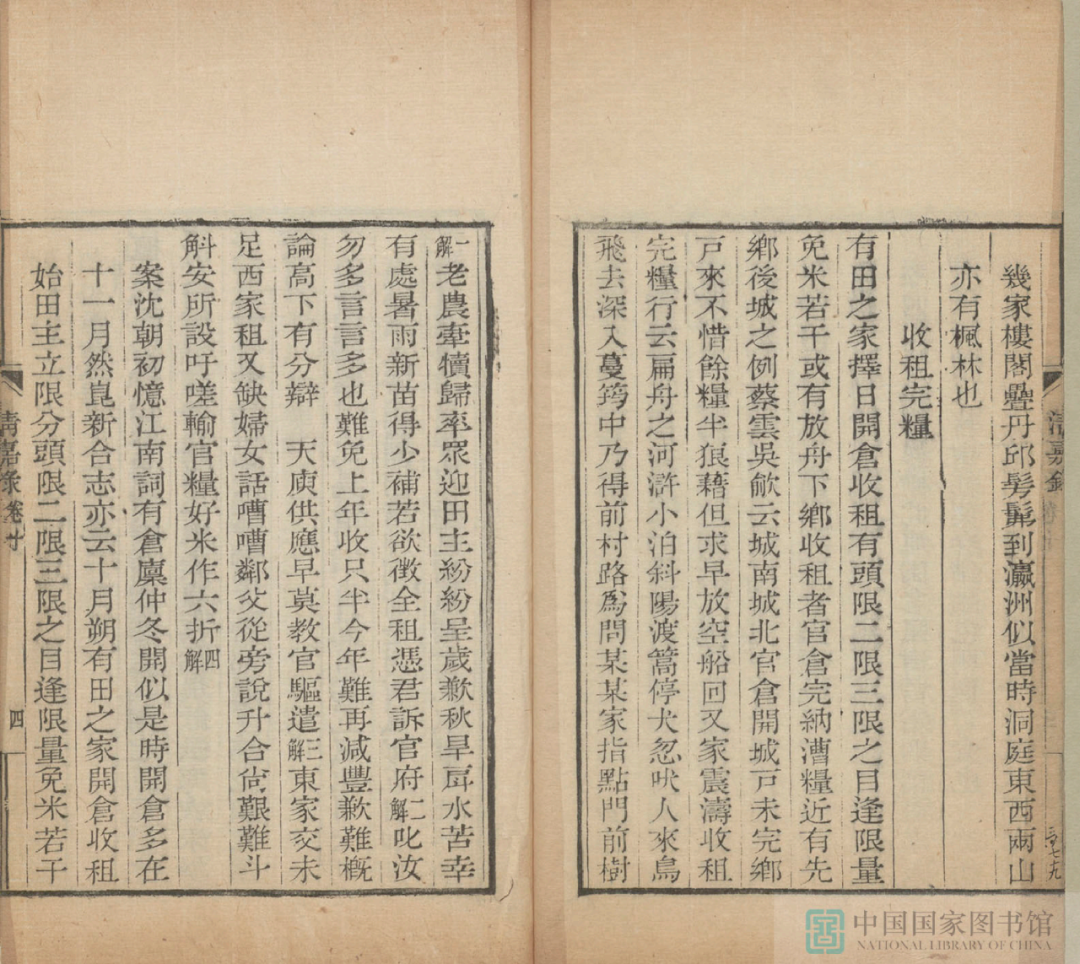 幾家樓閣疊丹邱髣髴到瀛洲似當時洞庭東西兩山
亦有楓林也
收租完糧
有田之家擇日開倉收租有頭限二限三限之目逢限量
免米若干或有放舟下鄉收租者官倉完納漕糧近有先
鄉後城之例蔡雲吳歈云城南城北官倉開城戸未完鄉
戸來不惜餘糧半狼藉但求早放空船回又家震濤收租
完糧行云扁舟之河滸小泊斜陽渡篙停犬忽吠人來鳥
飛去深入蔓筠中乃得前村路爲問某某家指點門前樹
一解老農牽犢歸率眾迎田主紛紛呈歲歉秋旱戽水苦幸
有處暑雨新苗得少補若欲徵全租憑君訴官府二解叱汝
勿多言言多也難免上年收只半今年難再減豐歉難概
論高下有分辯 天庾供應早莫教官驅遣三解東家交未
足西家租又缺婦女話嘈嘈鄰父從旁說升合尙艱難斗
斛安所設吁嗟輸官糧好米作六折四解
案沈朝初憶江南詞有倉廩仲冬開似是時開倉多在
十一月然崑新合志亦云十月朔有田之家開倉收租
始田主立限分頭限二限三限之目逢限量免米若干
清嘉錄
清嘉錄 卷十
四
中国国家图书馆
NATIONAL LIBRARY OF CHINA